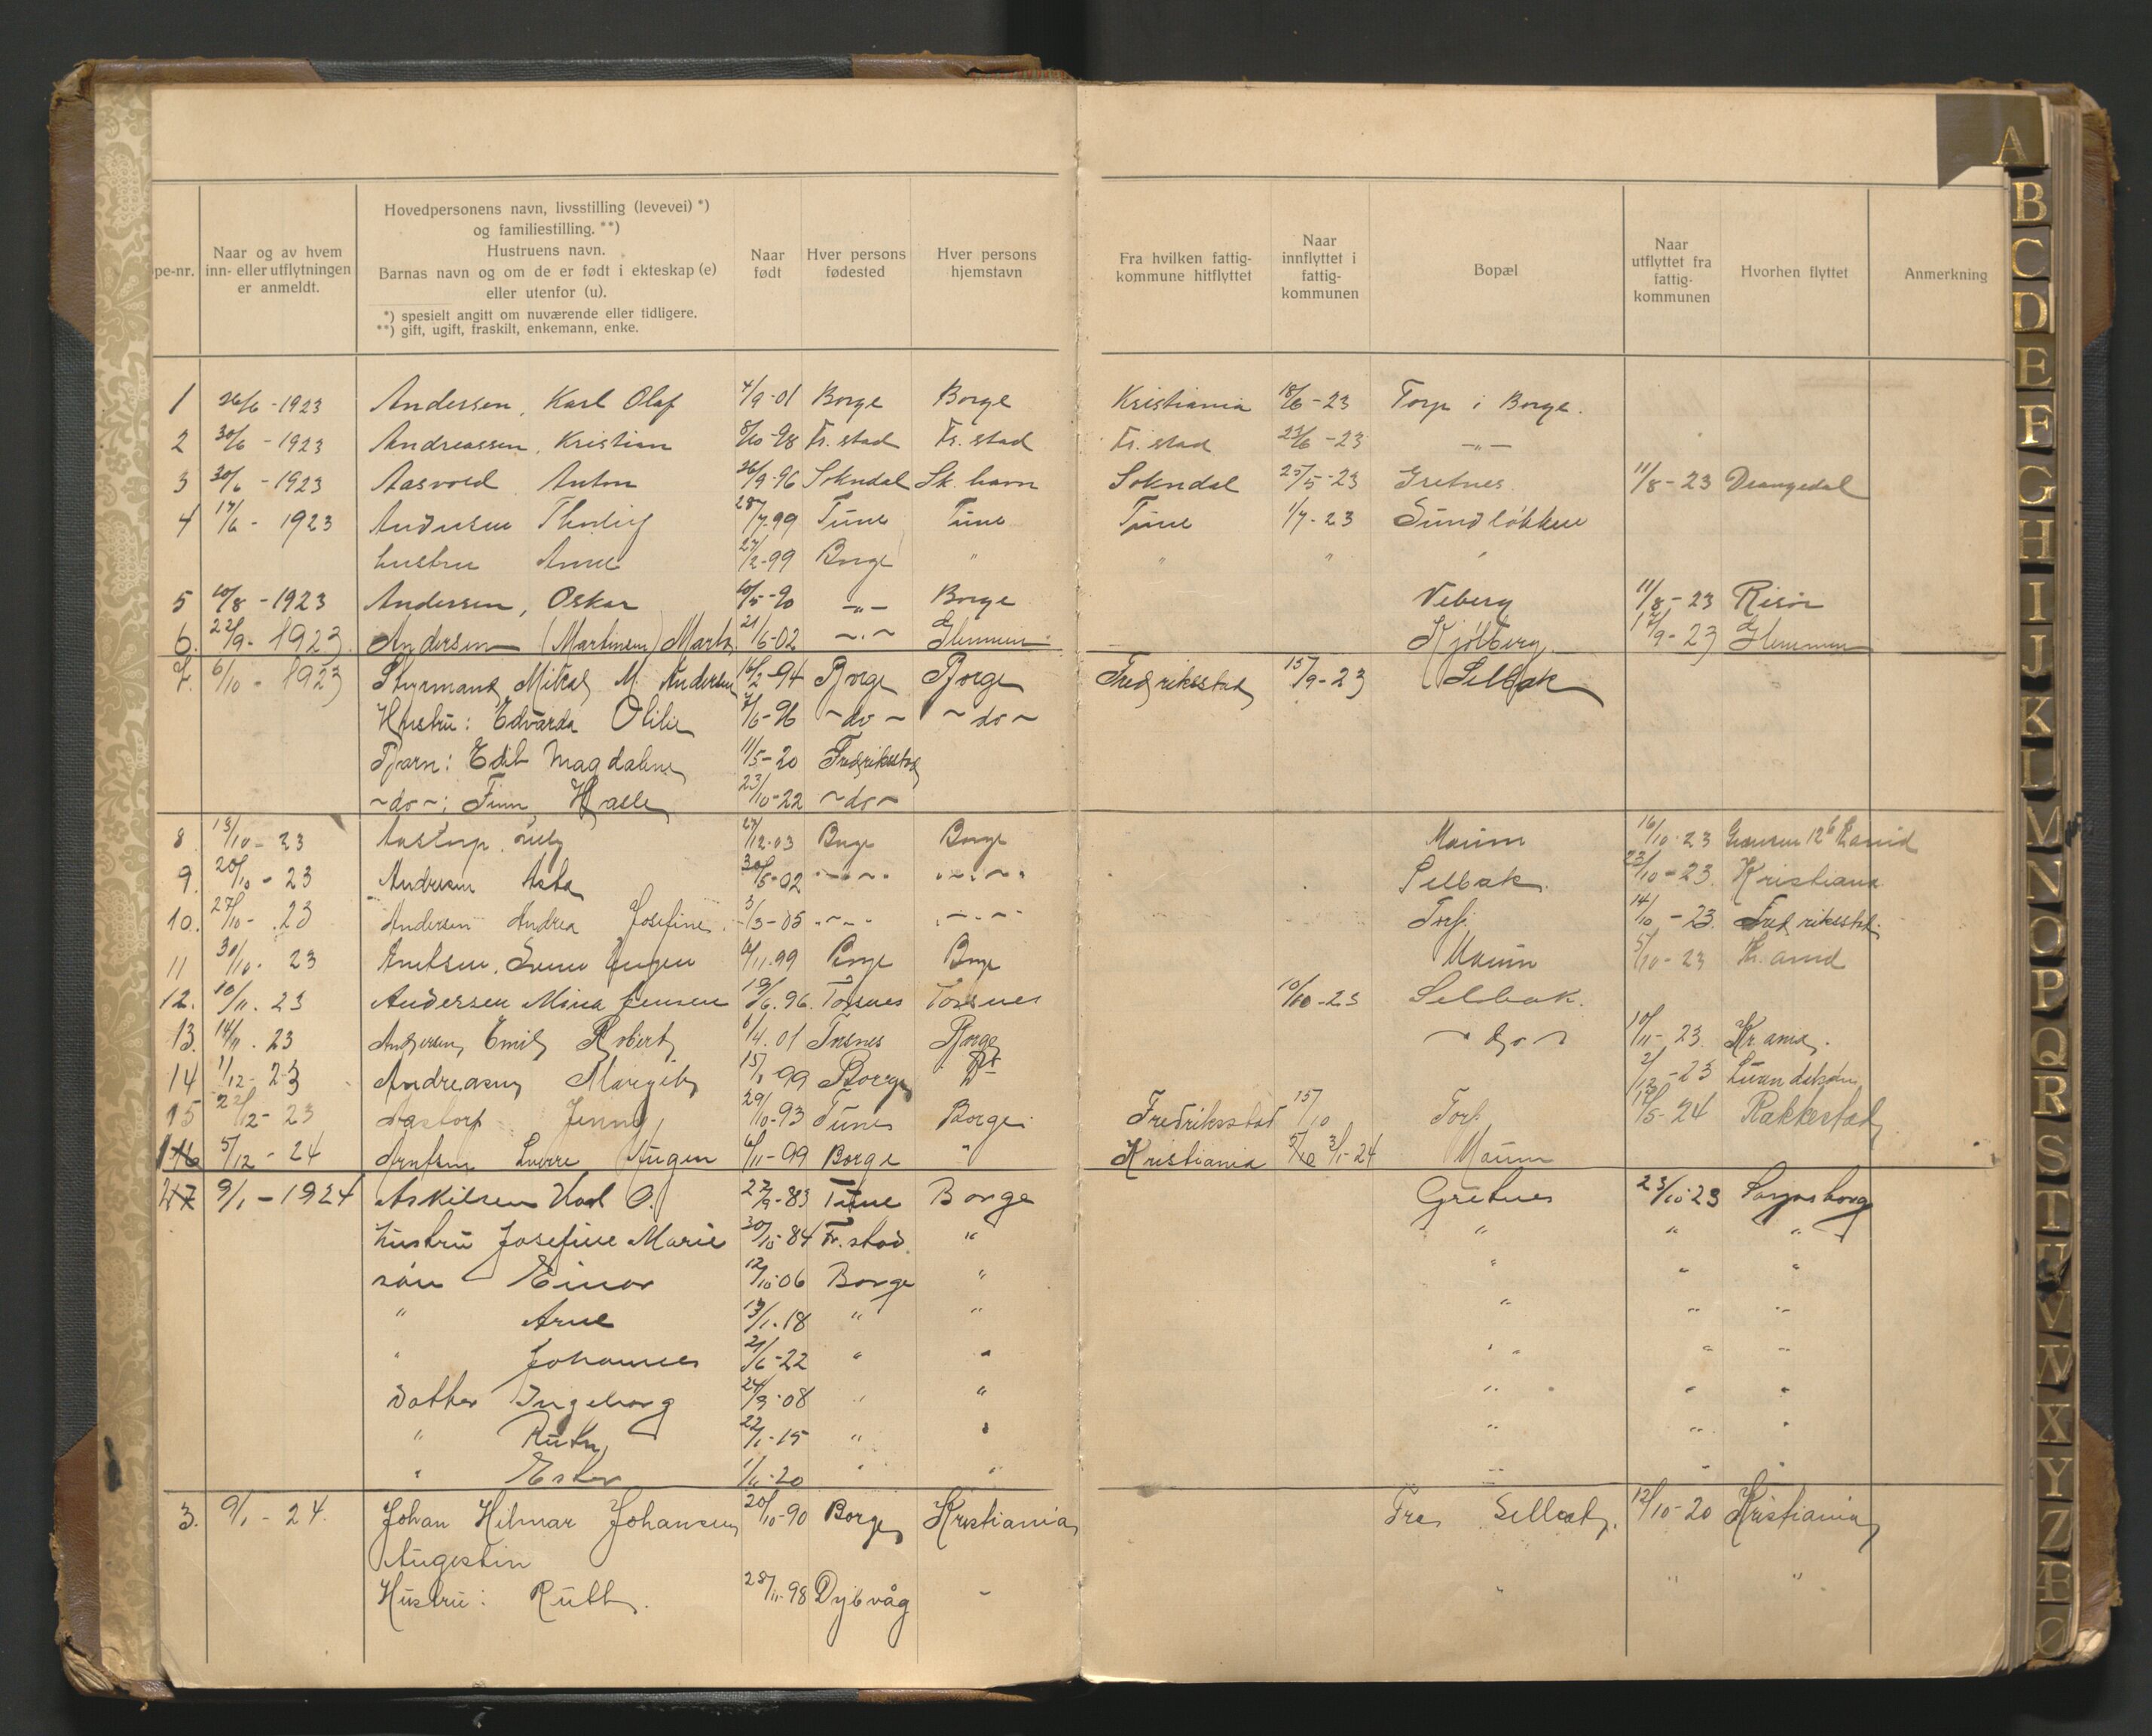 pe-nr. Naar og av hvem inn- eller utflytningen er anmeldt. Hovedpersonens navn, livsstilling (levevei) *) og familiestilling. **) Hustruens navn. Barnas navn og om de er født i ekteskap (e) eller utenfor (u). *) spesielt angitt om nuværende eller tidligere. **) gift, ugift, fraskilt, enkemann, enke. Naar født Hver persons fødested Hver persons hjemstavn Fra hvilken fattig-kommune hitflyttet Naar innflyttet i fattig-kommunen Bopæl Naar utflyttet fra fattig-kommunen Hvorhen flyttet Anmerkning
1 26/6 - 1923 Andersen, Karl Olaf 4/9-01 Borge Borge Kristiania 18/6-23 Torp i Borge.
2 30/6 - 1923 Andreassen, Kristian 8/10-98 Fr. stad Fr. stad Fr. stad 23/6-23 -"-
3 30/6 - 1923 Aasvold Anton 26/9-96 Sokndal Sk. havn Sokndal 25/5-23 Gretnes 11/8-23 Drangedal
4 17/6 - 1923 Andersen Thorleif 28/7-99 Tune Tune Tune 1/7-23 Sundløkken
hustru Anna 27/2-99 Borge " " " "
5 10/8 - 1923 Andersen, Oskar 10/5-90 -"- Borge Veberg 11/8-23 Risør
6. 22/9 - 1923. Andersen (Martinsen) Marta 21/6-02 -"- Glemmen Kjølberg. 12/9-23 Glemmen
7. 6/10 - 1923 Styrmand Mikal M. Andersen 16/2-94 Borge Borge Fredriksstad 15/9-23 Selbak
Hustru: Edvarda Otilie 7/6-96 ~do~ ~do~
Barn: Edit Magdalene 11/5-20 Fredriksstad
~do~: Finn Halle 23/10-22 ~do~
8. 13/10 - 23 Aastorp 27/12-03 Borge Borge Moum 16/10-23
9. 20/10 - 23 Andresen Asta 30/5-02 -"- -"- Selbak. 23/10-23. Kristiania
10. 27/10 - 23 Andersen Andrea Josefine. 3/3-05 -"- -"- Torp. 14/10-23. Fredriksstad.
11 30/10 - 23 Eugen 6/11.99 Borge Borge Moum 5/10-23
12. 10/11. 23 Andersen Mina Jensen 19/6.96. Torsnes Torsnes 10/10-23 Selbak.
13. 14/11. 23 Andersen, Emil Robert 6/4.01 Torsnes Borge ~do~ 10/11-23 Kr.ania.
14 1/12 - 23 Andreasen Margit 15/8 99 Borge 2/12-23
15 22/12 - 23 Aastorp Jenny 29/10-93 Tune Borge. Fredriksstad 15/10 Torp. 12/5-24 Rakkestad
16 5/12 - 24 Arntsen Sverre Eugen 6/11-99 Borge " Kristiania 3/1-24 Moum
17 9/1 - 1924 Askilsen Karl O. 27/9-83 Tune Borge Gretnes 23/10-23 Sarpsborg
hustru Josefine Marie 30/10-84 Fr. stad. " " " "
søn Einar 12/10-06 Borge " " " "
" Arne 13/1-18 " " " " "
" Johannes 21/6-22 " " " " "
Datter Ingeborg 24/9-08 " " " " "
" Ruth 22/1-15 " " " " "
" Ester 1/4-20 " " " " "
3. 9/1 - 24. Johan Hilmar Johansen 20/10-90 Borge Kristiania Fra Sellbak. 12/10-20 Kristiania
Augestin
Hustru: Ruth. 28/11-98 Dybvåg " " " "
A
B
C
D
E
F
G
H
I
J
K
L
M
N
O
P
Q
R
S
T
U
V
W
X
Y
Z
Æ
Ø